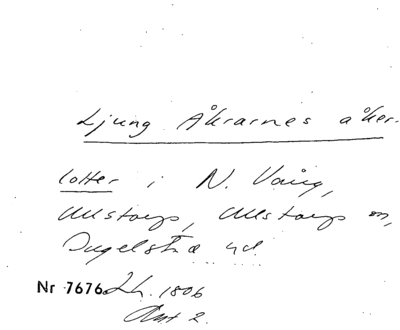 Ljung Åkrarnes åker-
lotter i N. Vång,
Ullstorp, Ullstorp sn,
Ingelstad hd.
Nr 7676. Lh. 1806
Akt 2.